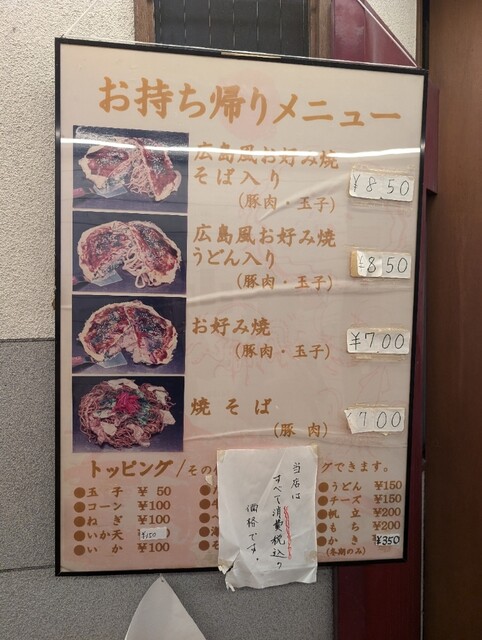 お持ち帰りメニュー
広島風お好み焼
そば入り
(豚肉・玉子)
¥850
広島風お好み焼
うどん入り
(豚肉・玉子)
¥850
お好み焼
(豚肉・玉子)
¥700
焼そば
(豚肉)
¥700
トッピング/その
グできます。
●玉子 ¥50
●コーン ¥100
●ねぎ ¥100
●いか天 ¥150
●いか ¥100
●うどん ¥150
●チーズ ¥150
●帆立 ¥200
●もち ¥200
●かき ¥350
(冬期のみ)
当店は
すべて消費税込の
価格です。